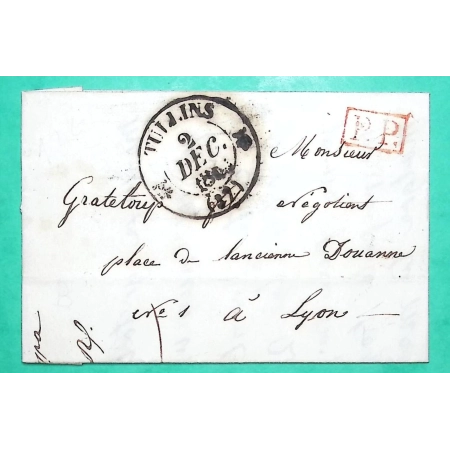 TULLINS
2
DEC.
(37)
P.P.
Monsieur
Grateloup négotient
place de lancienne Douanne
à Lyon